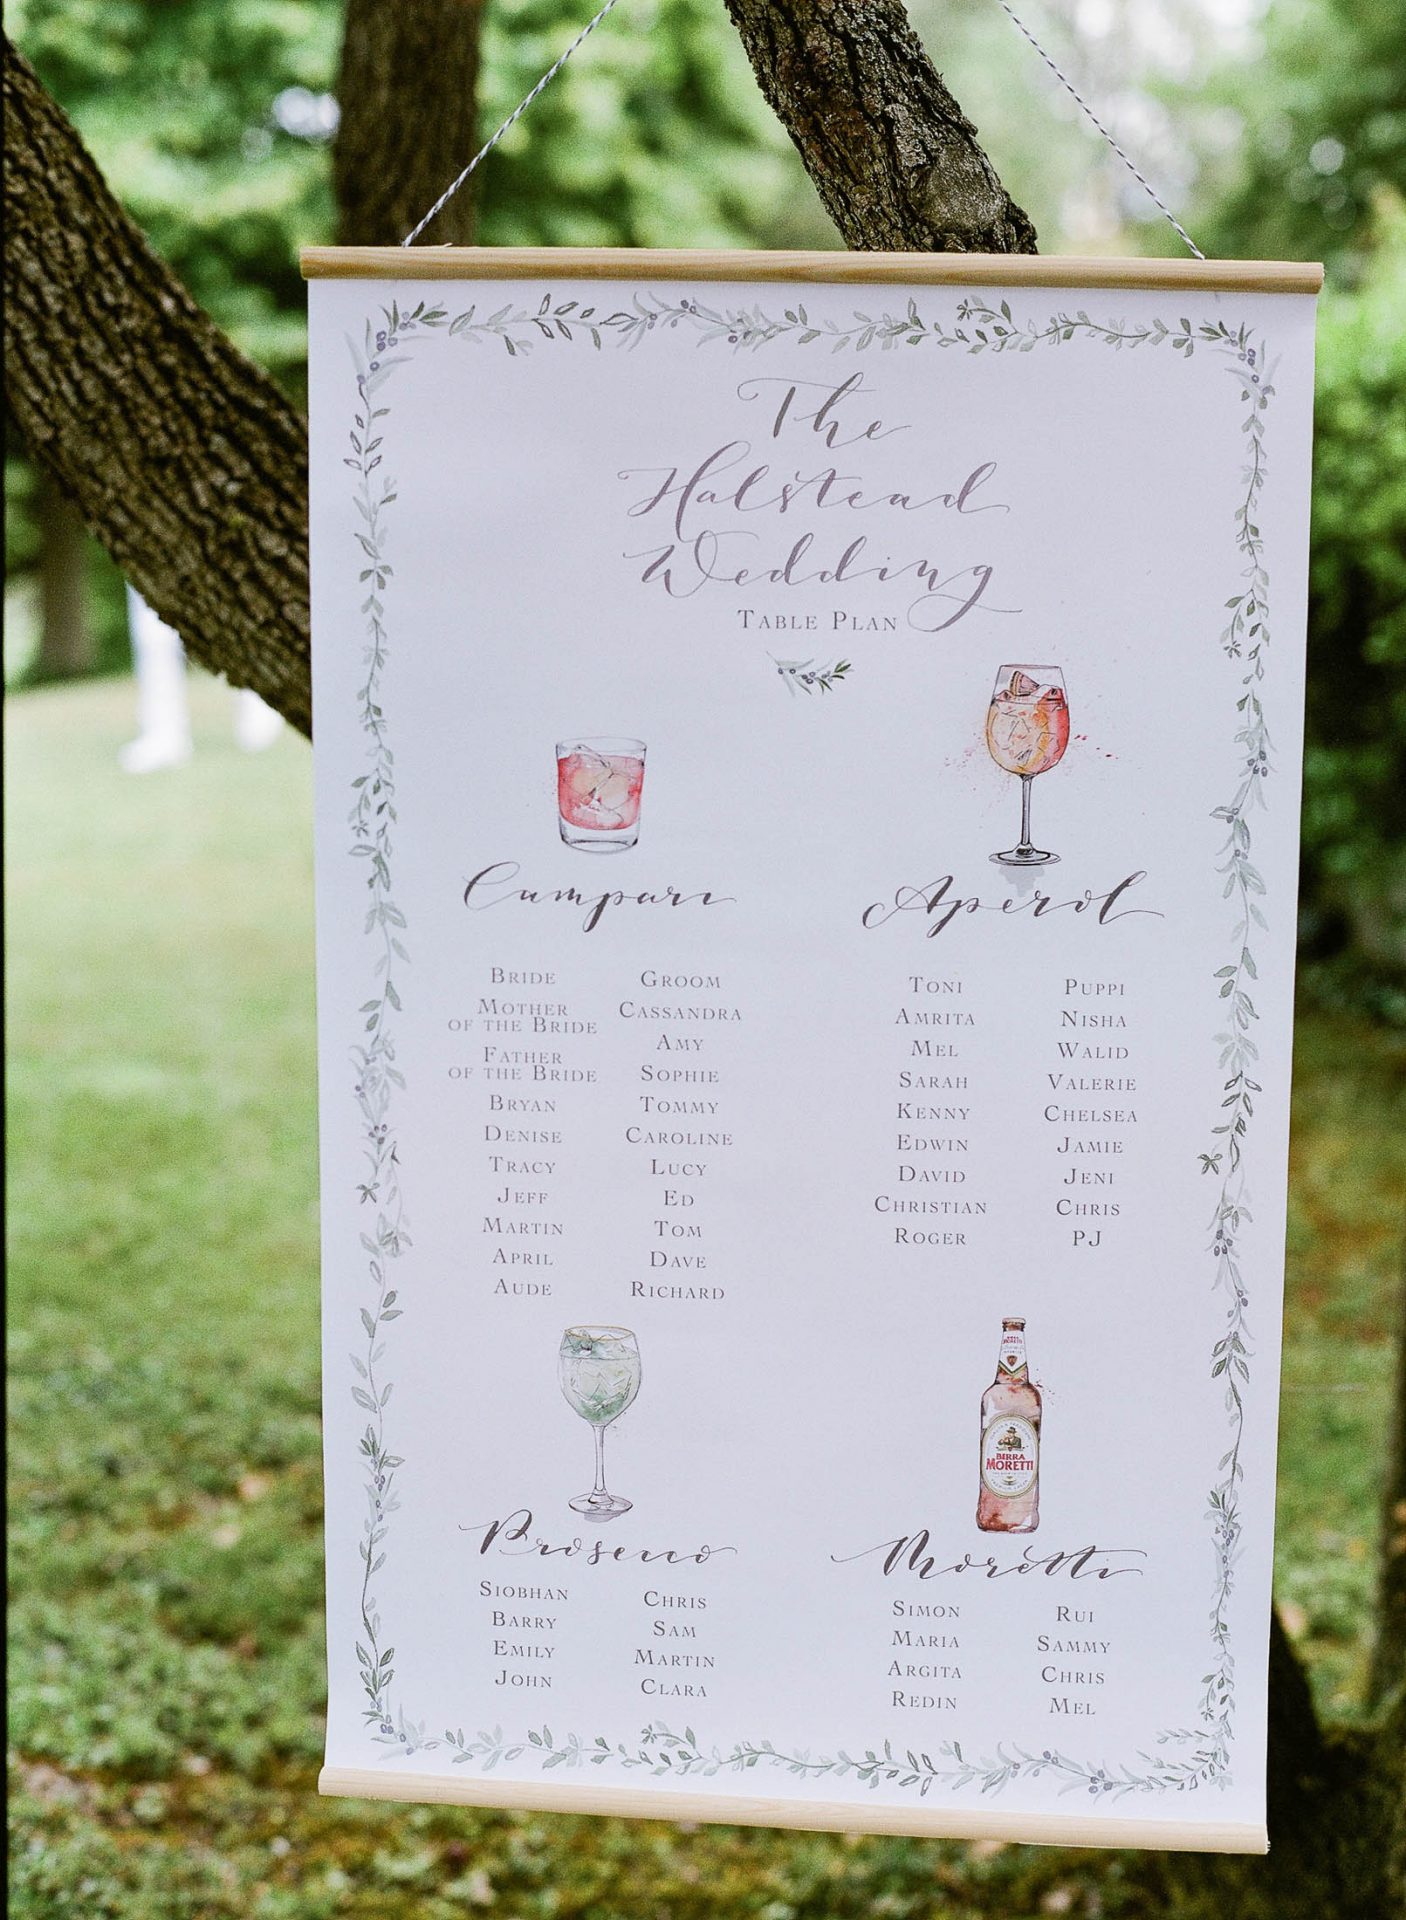 The
Halstead
Wedding
Table Plan
Campari
Bride
Mother
of the Bride
Father
of the Bride
Bryan
Denise
Tracy
Jeff
Martin
April
Aude
Groom
Cassandra
Amy
Sophie
Tommy
Caroline
Lucy
Ed
Tom
Dave
Richard
Aperol
Toni
Amrita
Mel
Sarah
Kenny
Edwin
David
Christian
Roger
Puppi
Nisha
Walid
Valerie
Chelsea
Jamie
Jeni
Chris
PJ
Prosecco
Siobhan
Barry
Emily
John
Chris
Sam
Martin
Clara
BIRRA
MORETTI
Moretti
Simon
Maria
Argita
Redin
Rui
Sammy
Chris
Mel